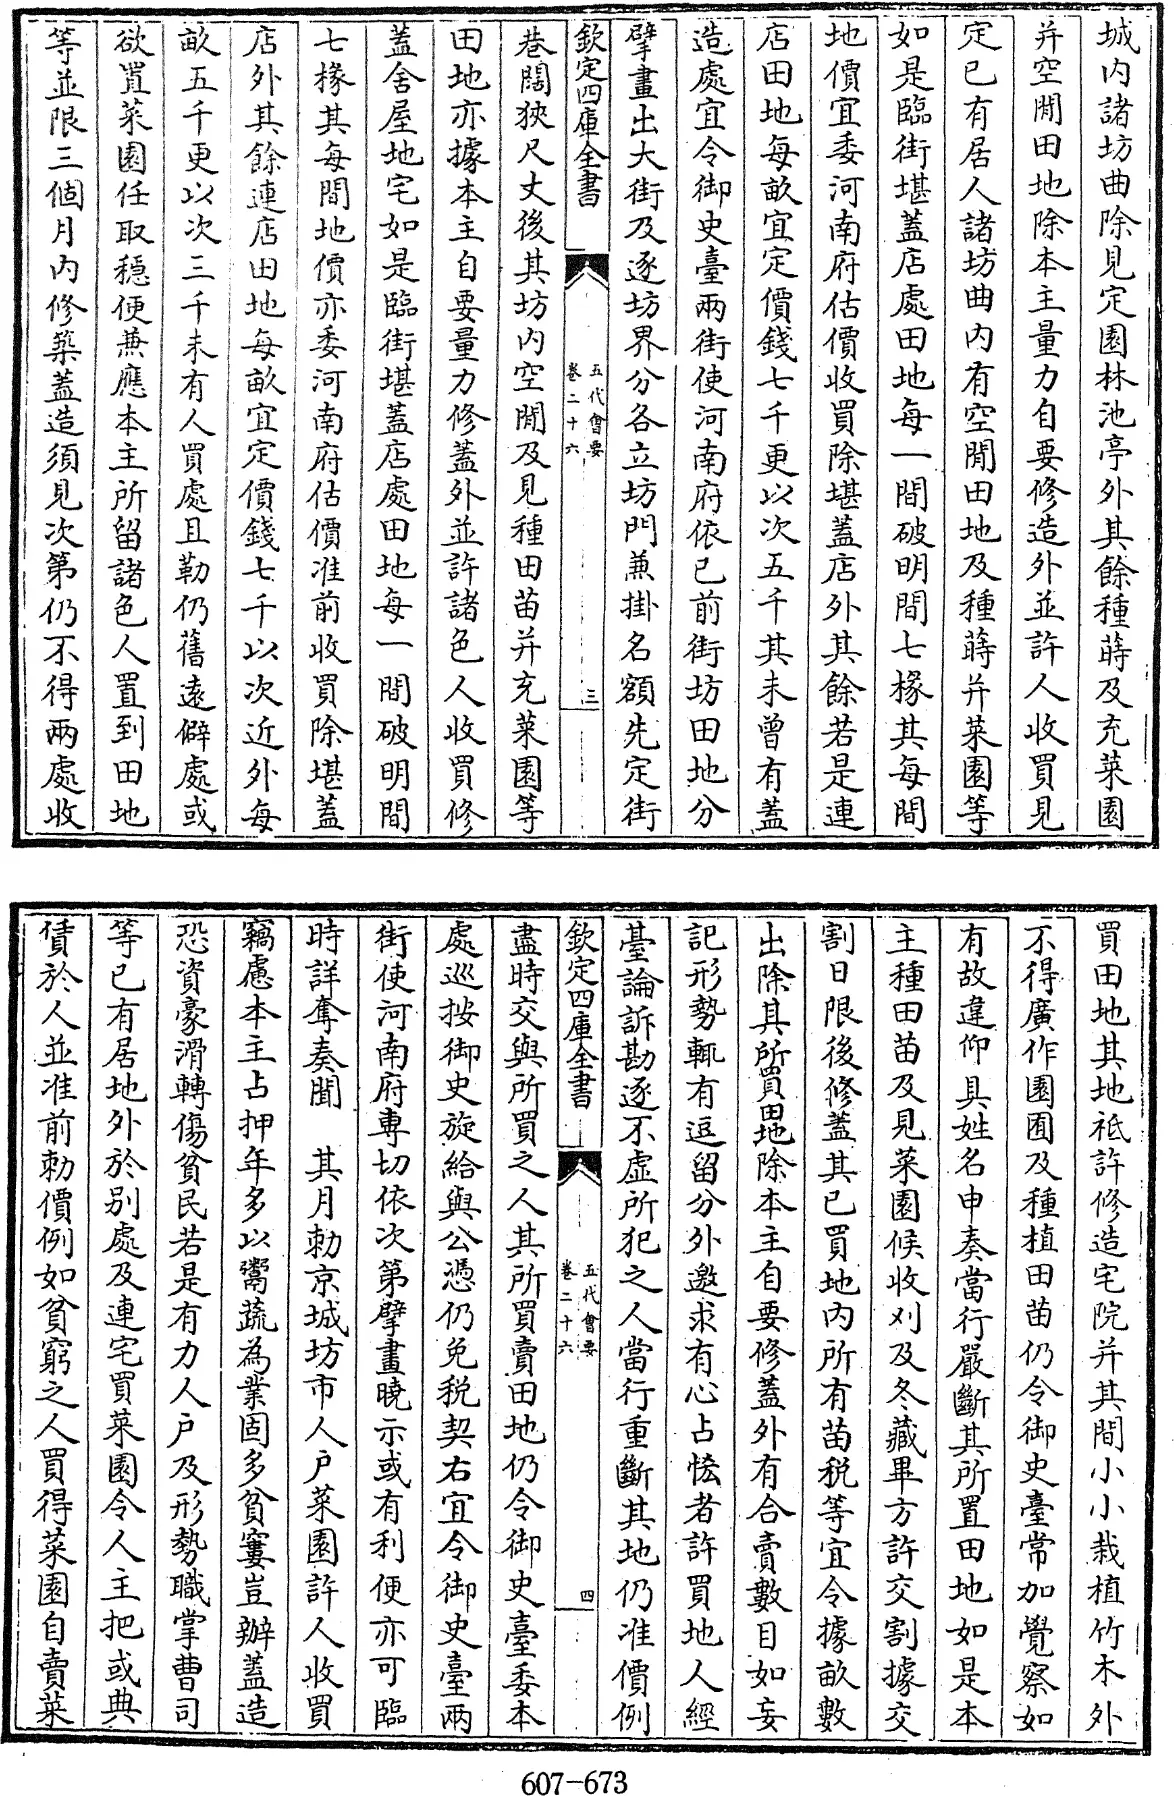 城内諸坊曲除見定園林池亭外其餘種蒔及充菜園
并空閒田地除本主量力自要修造外並許人收買見
定已有居人諸坊曲内有空閒田地及種蒔并菜園等
如是臨街堪蓋店處田地每一間破明間七椽其每間
地價宜委河南府估價收買除堪蓋店外其餘若是連
店田地每畝宜定價錢七千更以次五千其未曾有蓋
造處宜令御史臺兩街使河南府依已前街坊田地分
擘畫出大街及逐坊界分各立坊門兼掛名額先定街
欽定四庫全書
五代會要
卷二十六
三
巷闊狹尺丈後其坊内空閒及見種田苗并充菜園等
田地亦據本主自要量力修蓋外並許諸色人收買修
蓋舍屋地宅如是臨街堪蓋店處田地每一間破明間
七椽其每間地價亦委河南府估價准前收買除堪蓋
店外其餘連店田地每畝宜定價錢七千以次近外每
畝五千更以次三千未有人買處且勒仍舊遠僻處或
欲置菜園任取穩便兼應本主所留諸色人置到田地
等並限三個月内修築蓋造須見次第仍不得兩處收
買田地其地祗許修造宅院并其間小小栽植竹木外
不得廣作園囿及種植田苗仍令御史臺常加覺察如
有故違仰具姓名申奏當行嚴斷其所置田地如是本
主種田苗及見菜園候收刈及冬藏畢方許交割據交
割日限後修蓋其已買地内所有苗税等宜令據畝數
出除其所買田地除本主自要修蓋外有合賣數目如妄
記形勢輒有逗留分外邀求有心占恡者許買地人經
臺論訴勘逐不虚所犯之人當行重斷其地仍准價例
欽定四庫全書
五代會要
卷二十六
四
盡時交與所買之人其所買賣田地仍令御史臺委本
處巡按御史旋給與公憑仍免税契右宜令御史臺兩
街使河南府專切依次第擘畫曉示或有利便亦可臨
時詳奪奏聞　其月勅京城坊市人戸菜園許人收買
竊慮本主占押年多以鬻蔬為業固多貧窶豈辦蓋造
恐資豪滑轉傷貧民若是有力人戸及形勢職掌曹司
等已有居地外於别處及連宅買菜園令人主把或典
賃於人並准前勅價例如貧窮之人買得菜園自賣菜
607-673